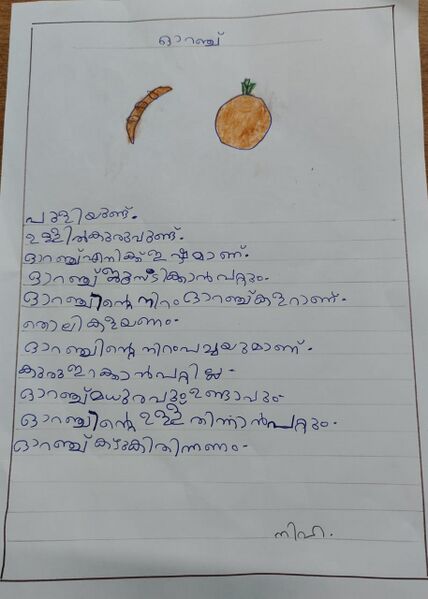 ഓറഞ്ച്
പുളിയുണ്ട്.
ഉള്ളിൽകുരുവുണ്ട്.
ഓറഞ്ച്എനിക്ക്ഇഷ്ടമാണ്.
ഓറഞ്ച് ജൂസ്ടിക്കാൻപറ്റും.
ഓറഞ്ചിന്റെ നിറം ഓറഞ്ച്കളറാണ്.
തൊലികളയണം.
ഓറഞ്ചിന്റെ നിറംപച്ചയുമാണ്.
കുരുഇറക്കാൻപറ്റില്ല.
ഓറഞ്ച്മധുരവുംഉണ്ടാവും.
ഓറഞ്ചിന്റെ ഉള്ള് തിന്നാൻപറ്റും.
ഓറഞ്ച് കഴുകിതിന്നണം.
നിഹ.